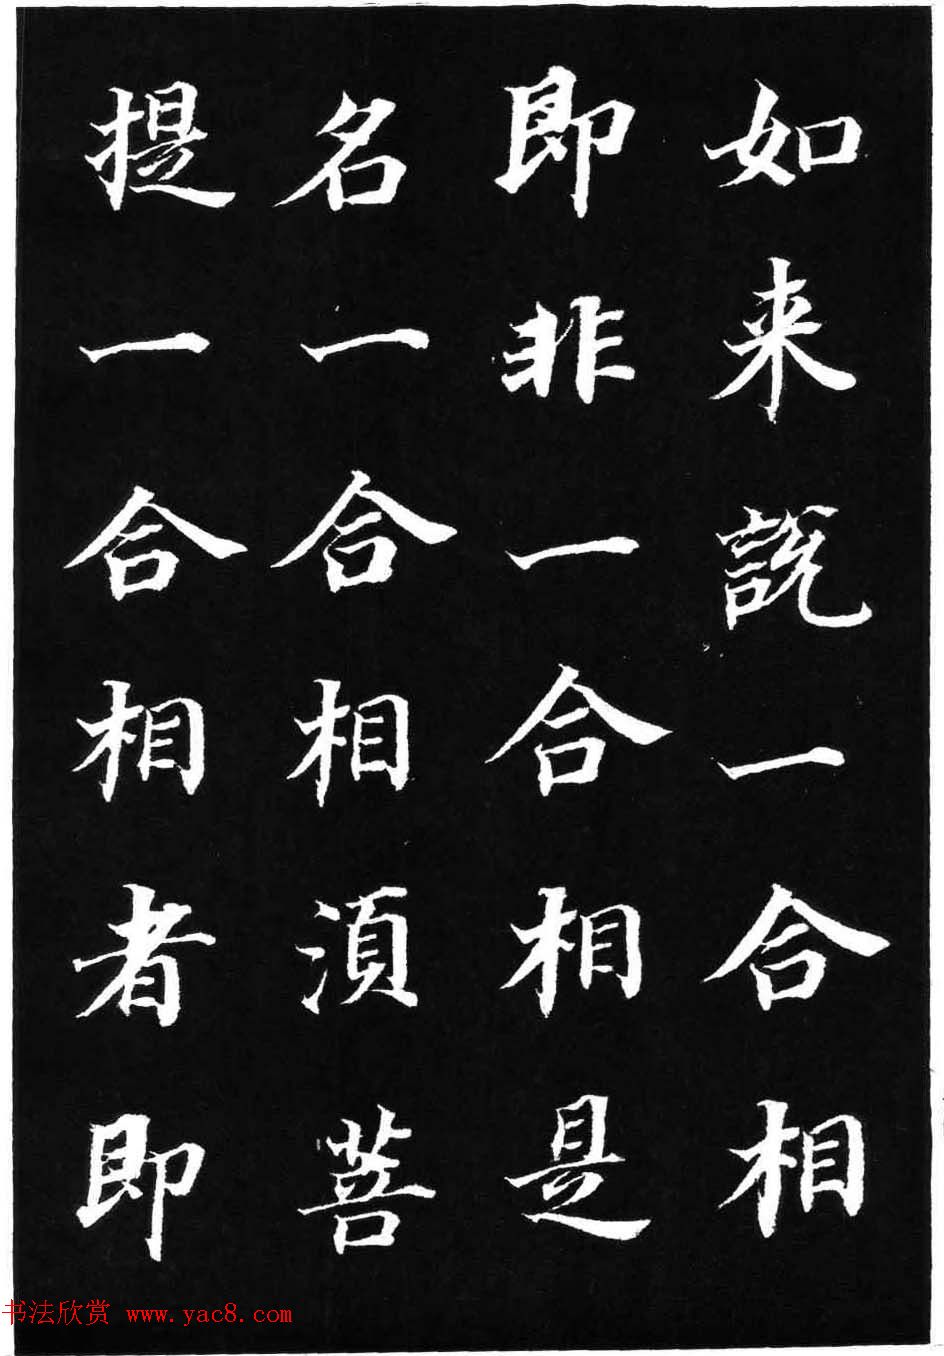 如来說一合相
即非一合相是
名一合相須菩
提一合相者即
书法欣赏 www.yac8.com